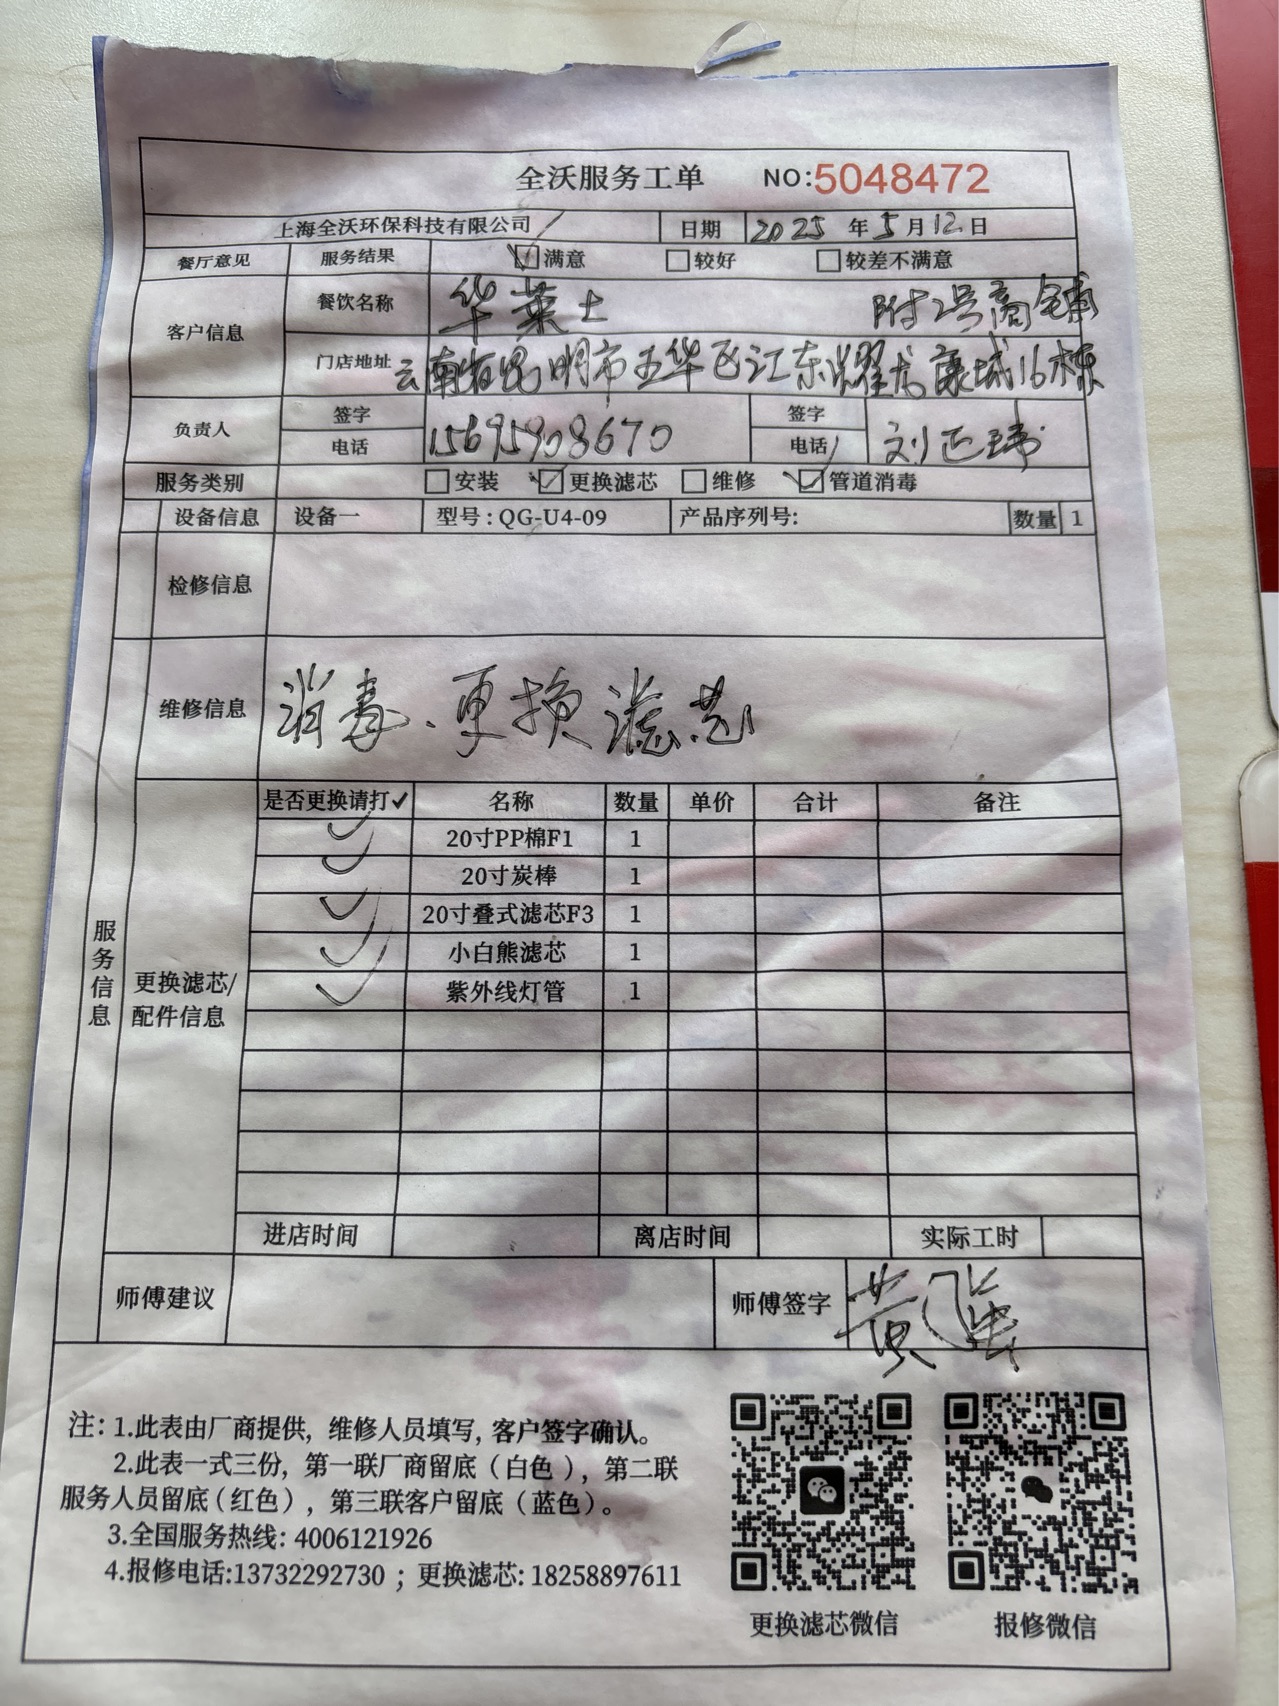 全沃服务工单 NO:5048472
上海全沃环保科技有限公司 日期 2025 年 5 月 12 日
餐厅意见 服务结果 ☑满意 □较好 □较差不满意
客户信息 餐饮名称 华莱士 附2号商铺
门店地址 云南省昆明市五华区江东耀龙康城16栋
负责人 签字 签字
电话 15695908670 电话 刘正玮
服务类别 □安装 ☑更换滤芯 □维修 ☑管道消毒
设备信息 设备一 型号:QG-U4-09 产品序列号: 数量 1
检修信息
维修信息 消毒、更换滤芯
服务信息
更换滤芯/配件信息
是否更换请打✓ 名称 数量 单价 合计 备注
✓ 20寸PP棉F1 1
✓ 20寸炭棒 1
✓ 20寸叠式滤芯F3 1
✓ 小白熊滤芯 1
✓ 紫外线灯管 1
进店时间 离店时间 实际工时
师傅建议 师傅签字 黄
注: 1.此表由厂商提供, 维修人员填写, 客户签字确认。
2.此表一式三份, 第一联厂商留底（白色）, 第二联
服务人员留底（红色）, 第三联客户留底（蓝色）。
3.全国服务热线: 4006121926
4.报修电话:13732292730 ; 更换滤芯: 18258897611
更换滤芯微信 报修微信